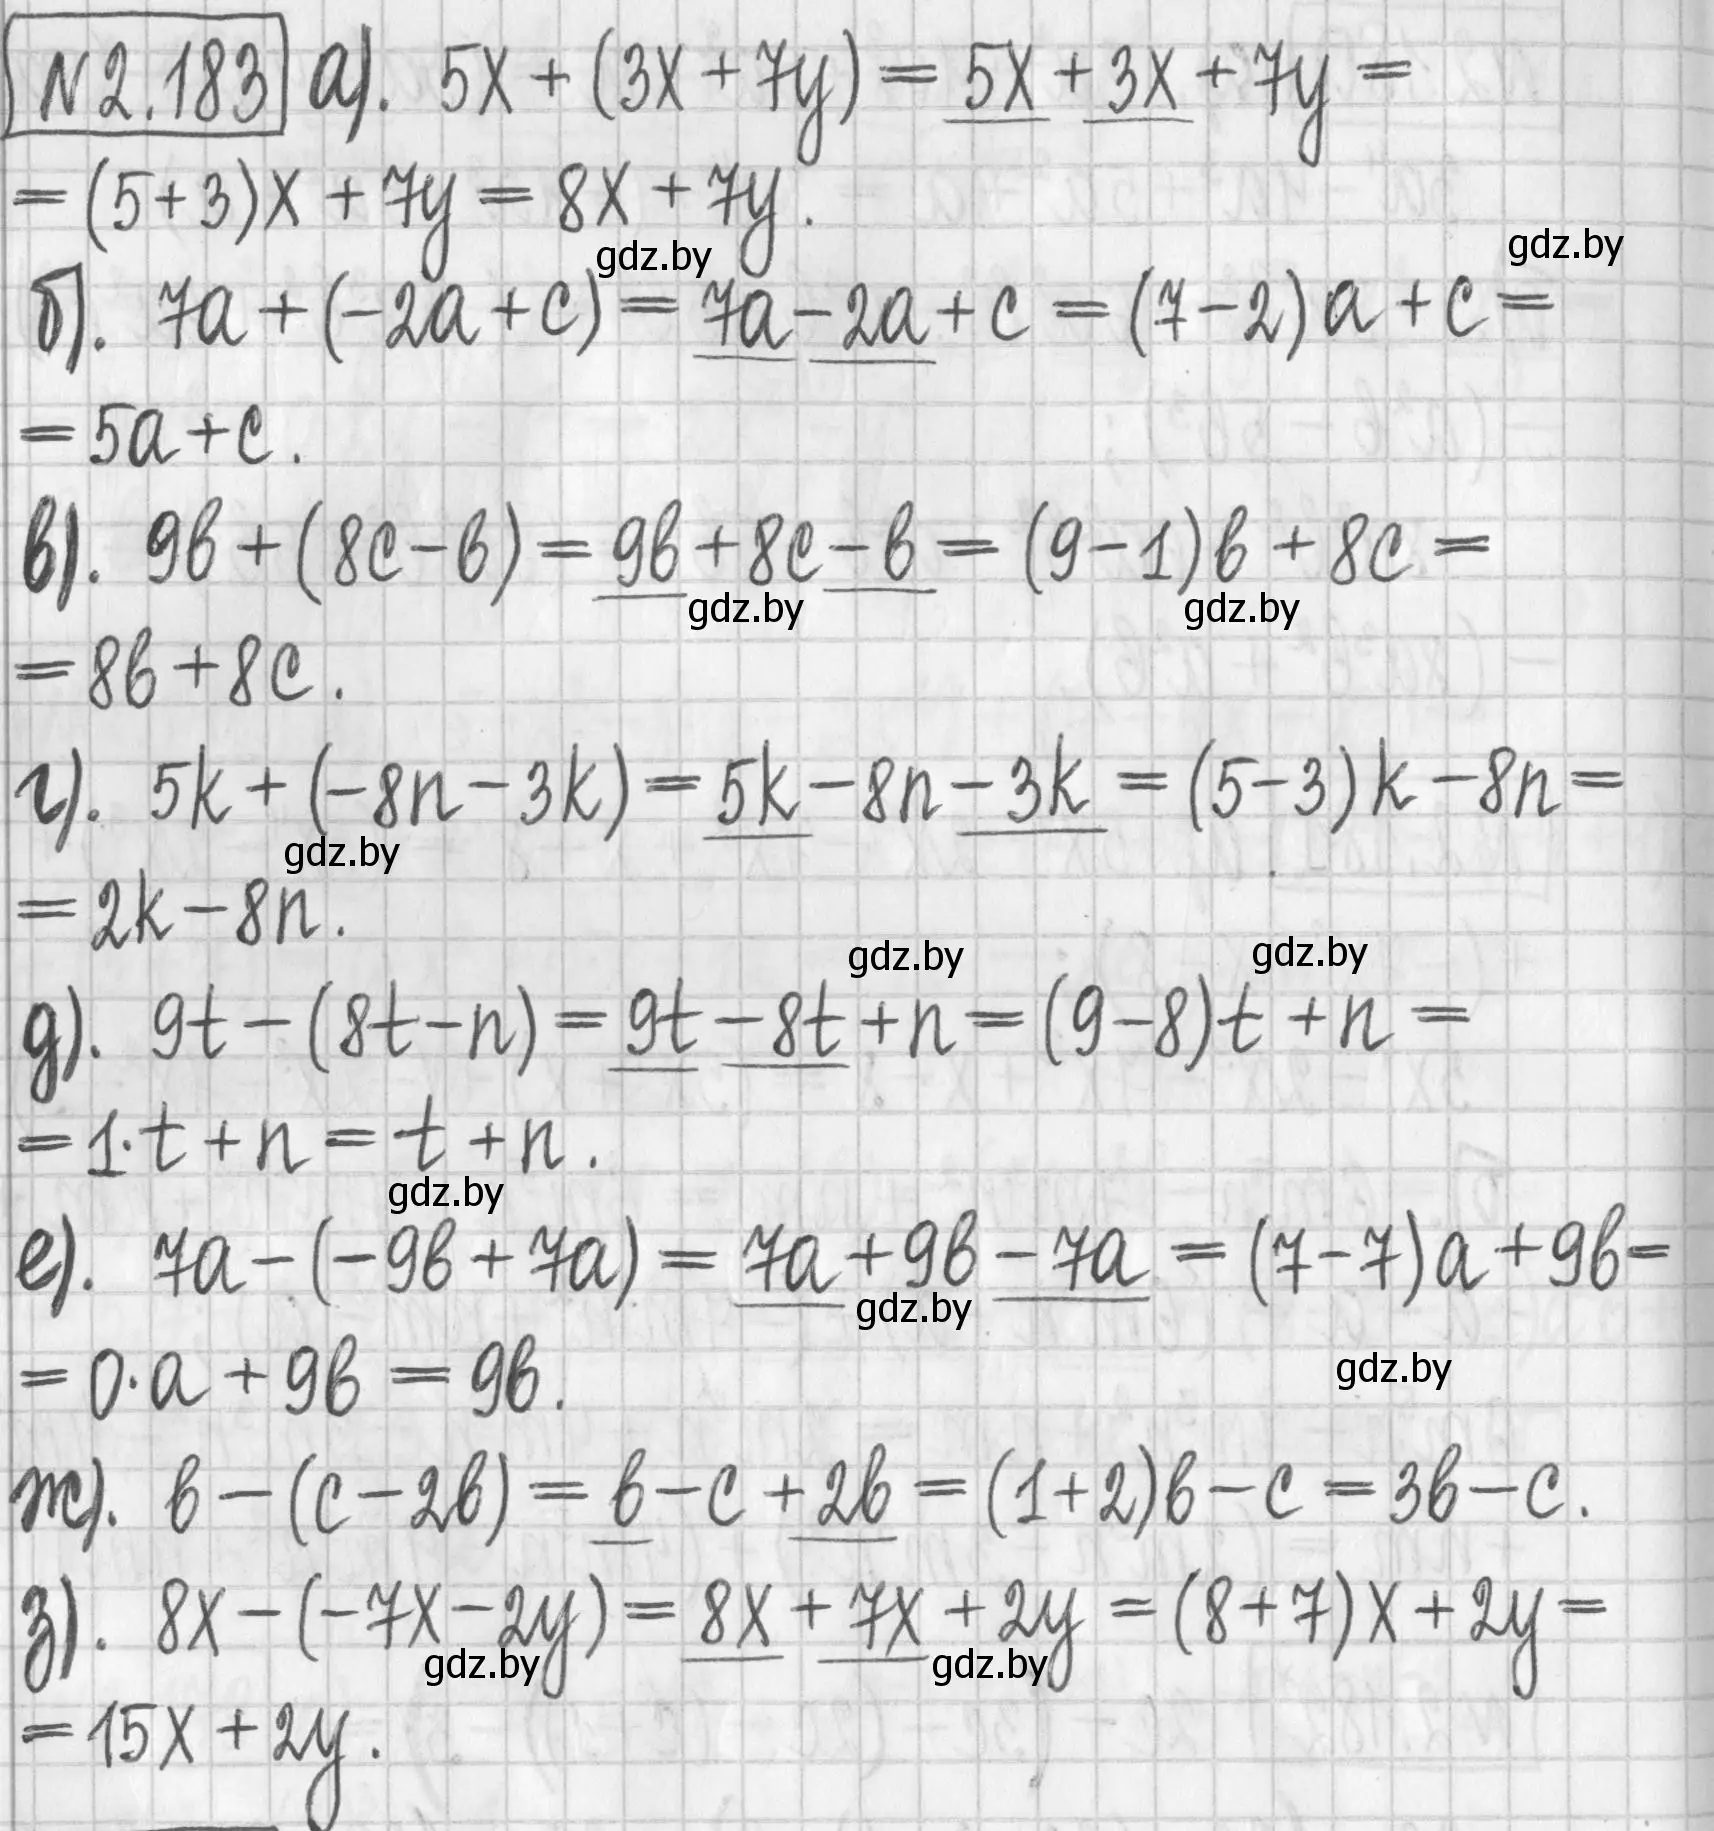 N2.183 а). 5x + (3x + 7y) = 5x + 3x + 7y =
= (5+3)x + 7y = 8x + 7y.
gdz.by gdz.by
б). 7a + (-2a + c) = 7a - 2a + c = (7-2)a + c =
= 5a + c.
в). 9b + (8c - b) = 9b + 8c - b = (9-1)b + 8c =
gdz.by gdz.by
= 8b + 8c.
г). 5k + (-8n - 3k) = 5k - 8n - 3k = (5-3)k - 8n =
gdz.by
= 2k - 8n.
gdz.by gdz.by
д). 9t - (8t - n) = 9t - 8t + n = (9-8)t + n =
= 1·t + n = t + n.
gdz.by
е). 7a - (-9b + 7a) = 7a + 9b - 7a = (7-7)a + 9b =
gdz.by
= 0·a + 9b = 9b.
gdz.by
ж). b - (c - 2b) = b - c + 2b = (1+2)b - c = 3b - c.
з). 8x - (-7x - 2y) = 8x + 7x + 2y = (8+7)x + 2y =
gdz.by gdz.by
= 15x + 2y.